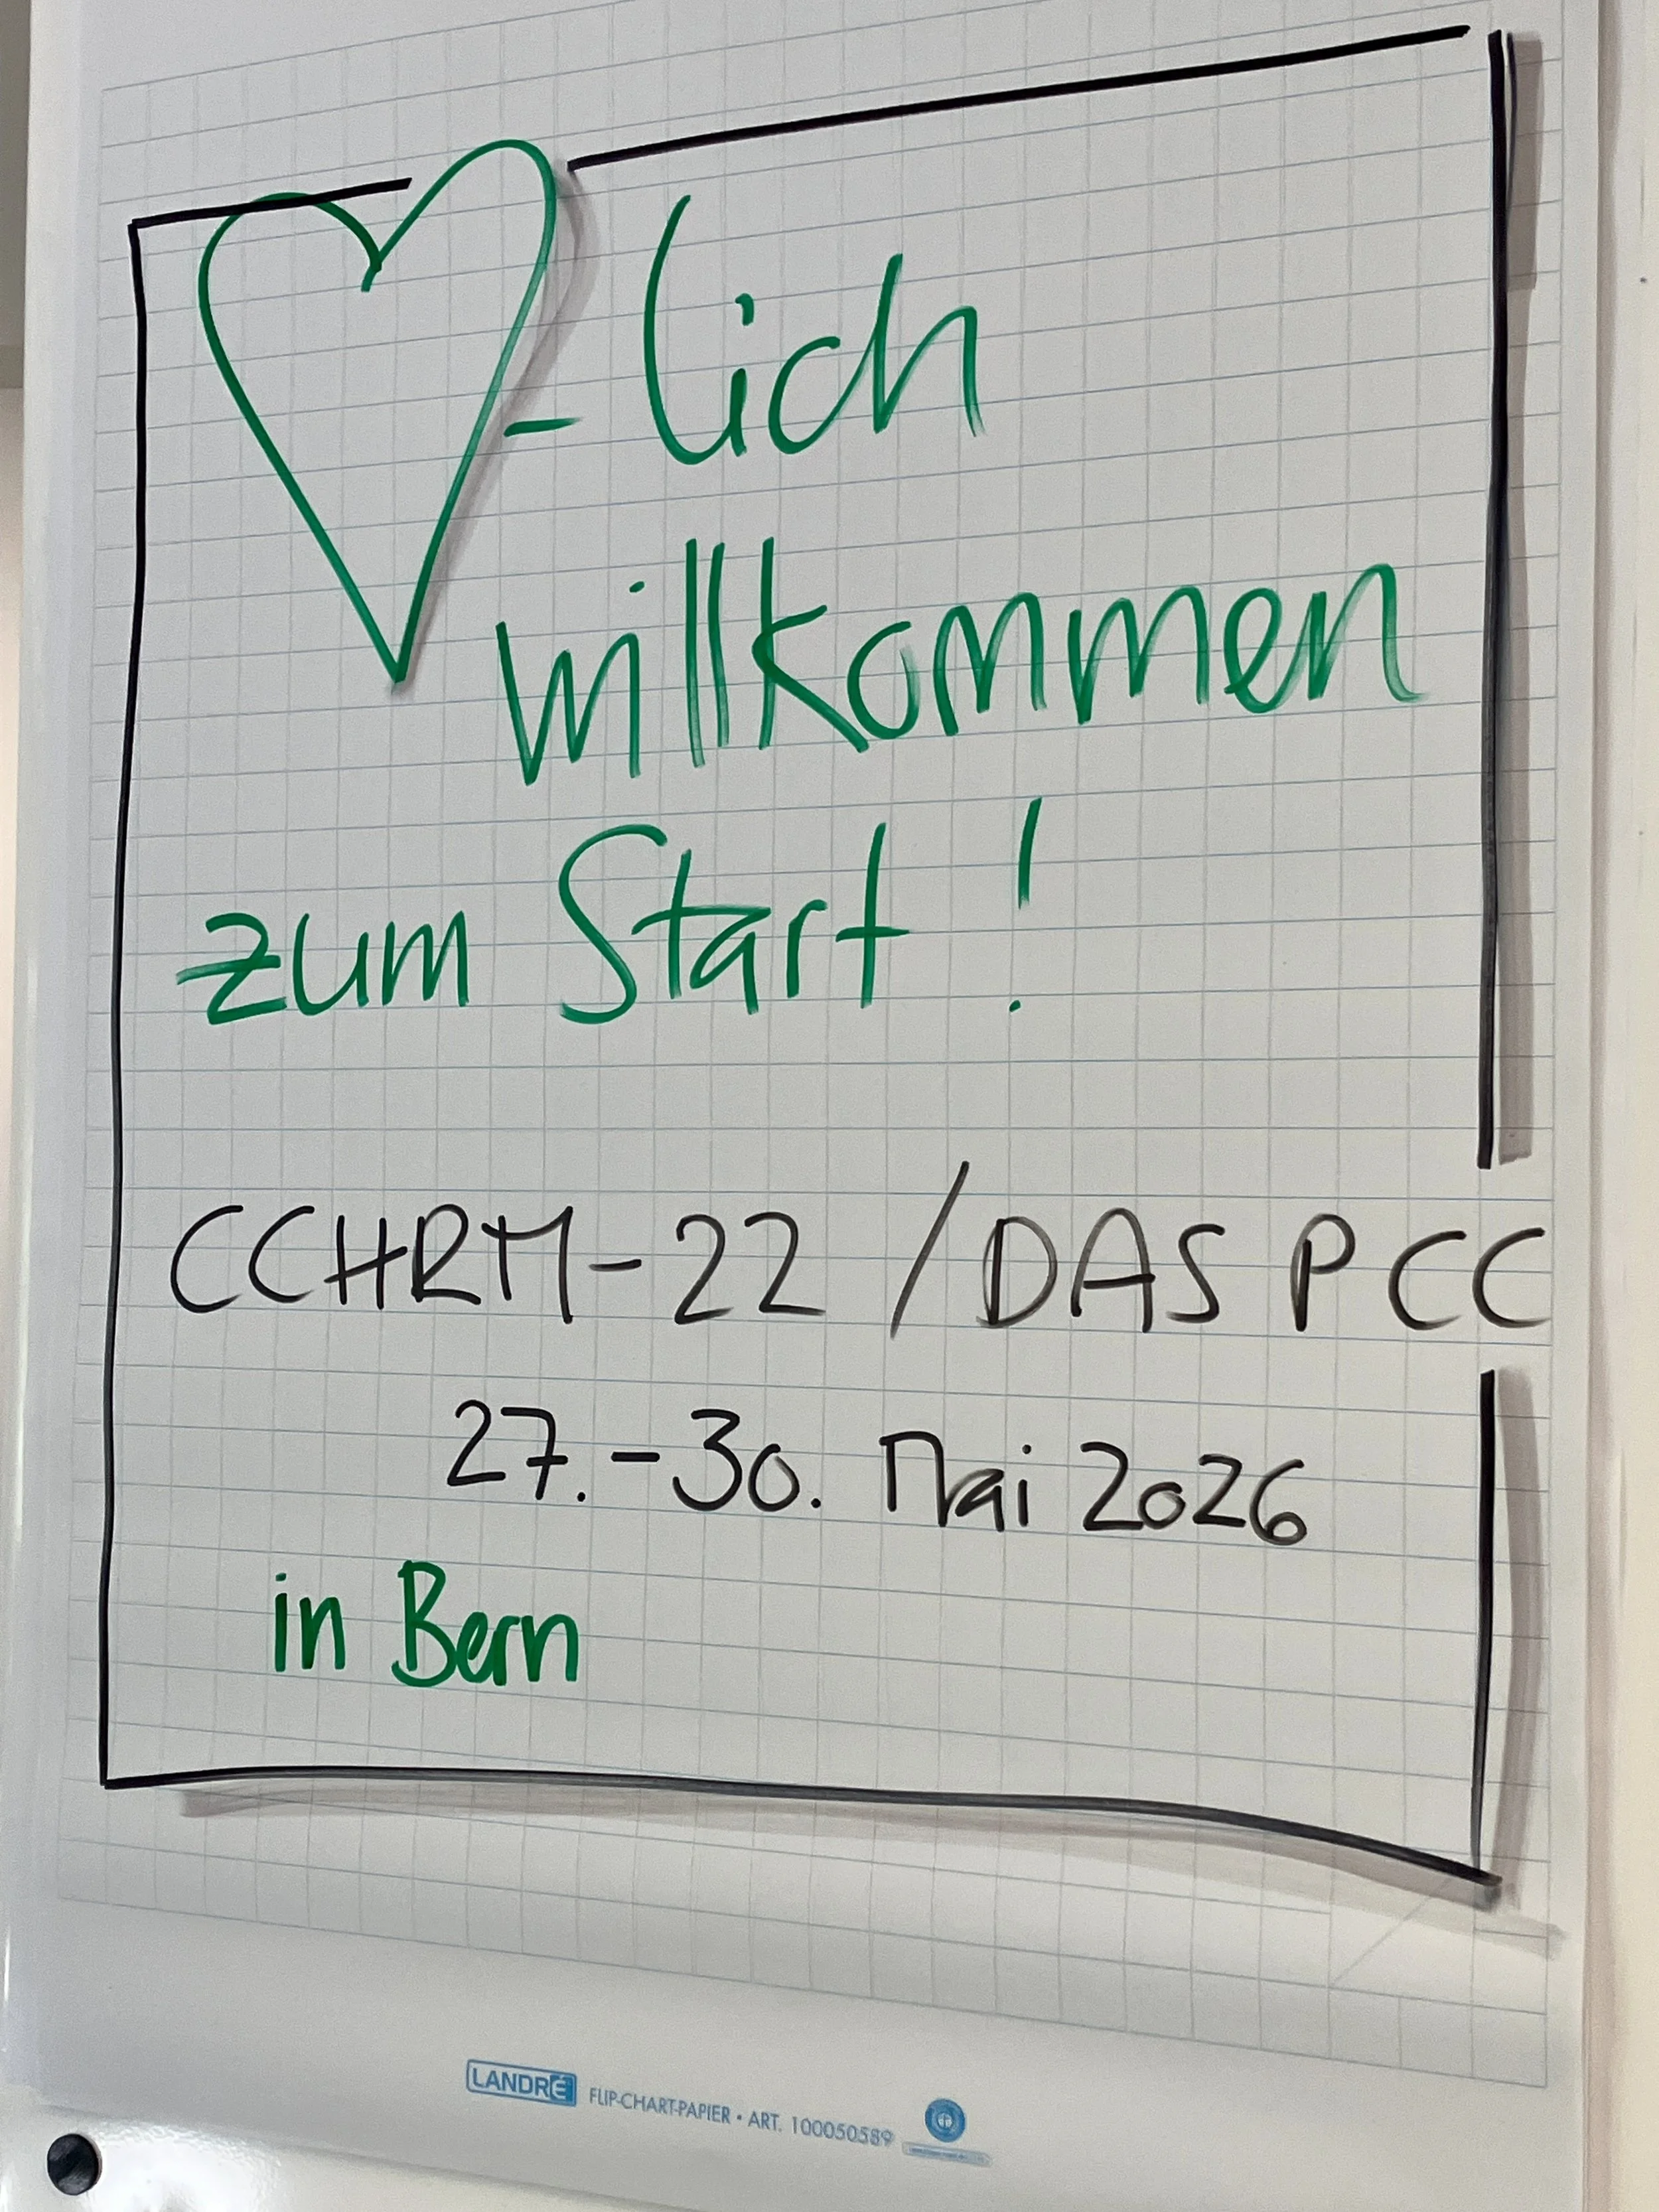 ♡-lich
willkommen
zum Start!
CCHRM-22 / DAS PCC
27.-30. Mai 2026
in Bern
LANDRÉ FLIP-CHART-PAPIER • ART. 100050589